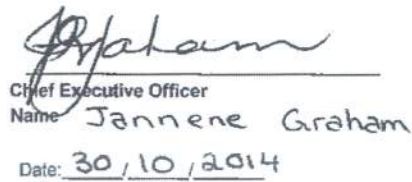 JGraham
Chief Executive Officer
Name Jannene Graham
Date: 30 / 10 / 2014